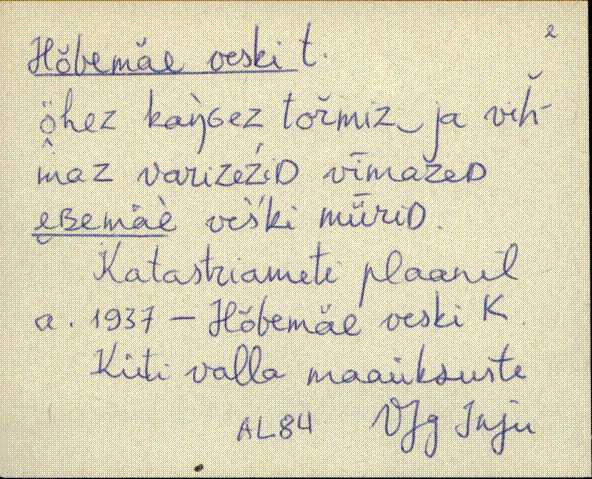 2
Hõbemäe veski t.
ö̭hez kaŋ́Gez tořmiz ja vih̆-
maz varizeźiD vīmažeD
e̮Bemäè veš́ki mǖriD.
Katastriameti plaanil
a. 1937 – Hõbemäe veski K
Kiiti valla maaüksuste
AL84 VJg Inju